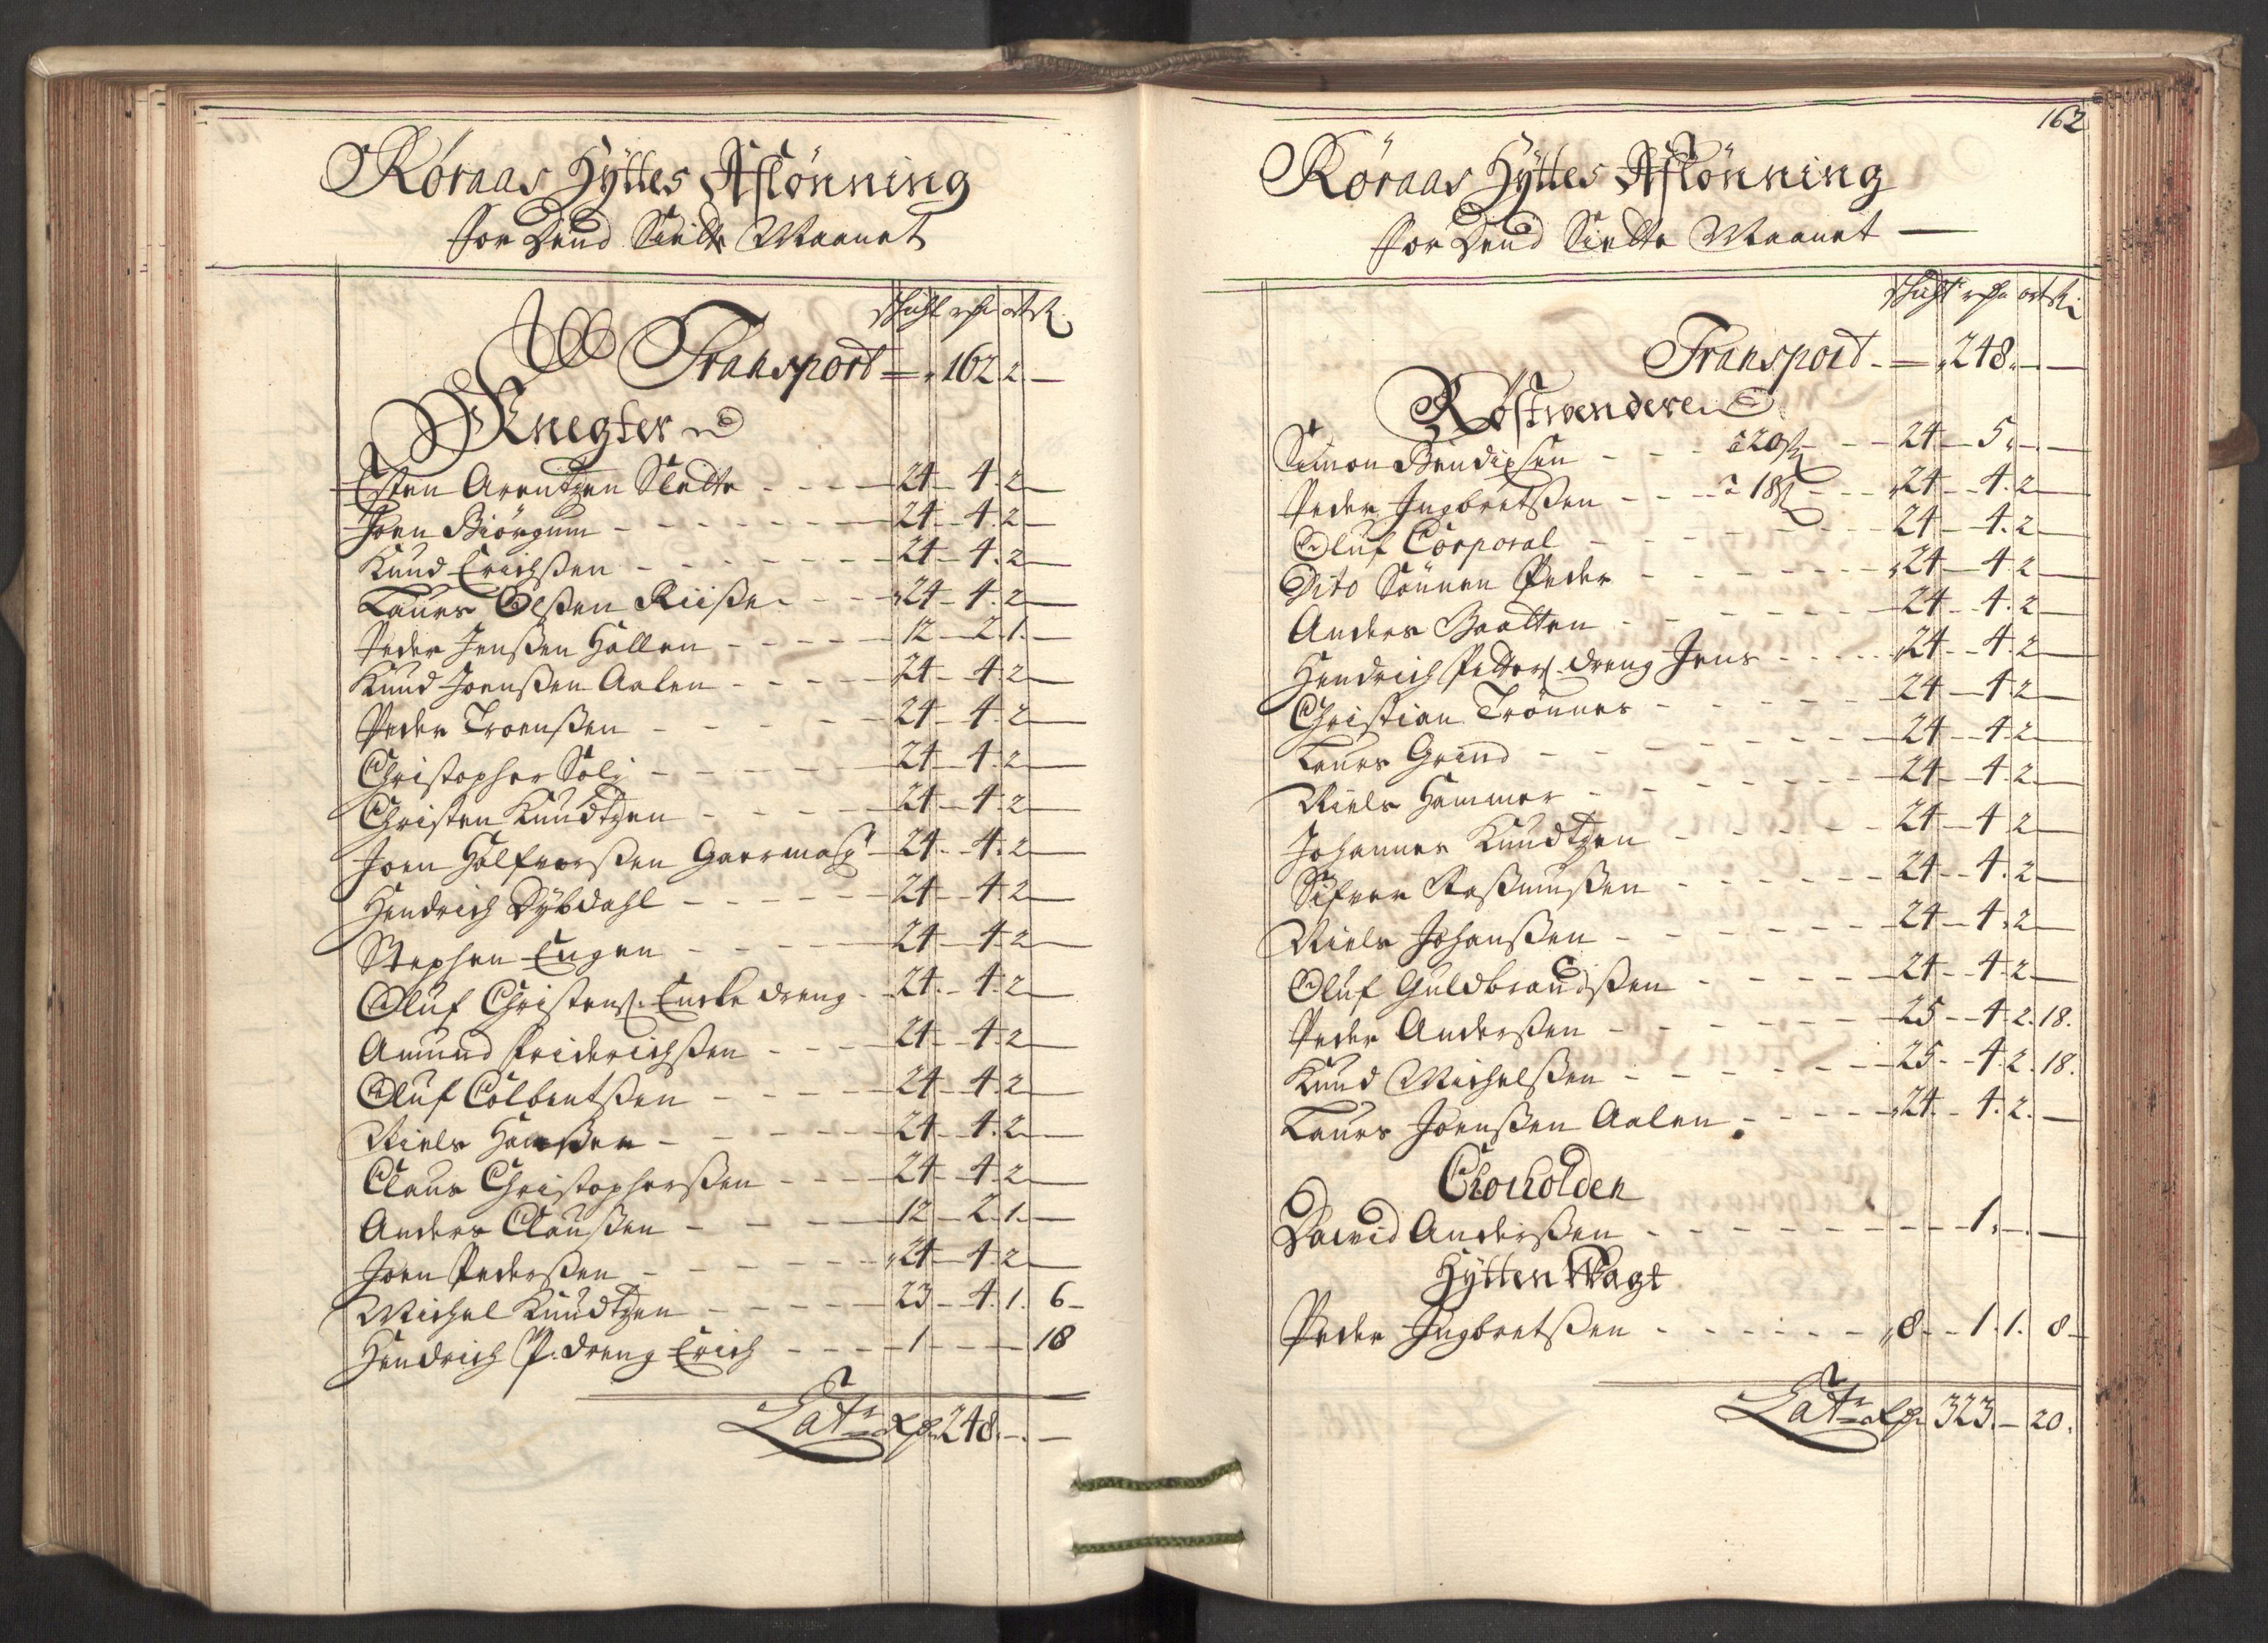 Røraas Hÿttes Aflønning
for Dend Siette Maanet
schicht rdr ort ß
Transport = 162 2 —
Knegter
Esten Arentzen Slette - - - 24 - 4. 2 —
Joen Biörgum - - - 24 - 4. 2 —
Knud Erichßen - - - 24 - 4. 2 —
Laurs Olßen Riise - - - 24 - 4. 2 —
Peder Jenßen Hallen - - - 12 - 2. 1. —
Knud Joenßen Aalen - - - 24 - 4. 2 —
Peder Troenßen - - - 24 - 4. 2 —
Christopher Soli - - - 24 - 4. 2 —
Christen Knudtzen - - - 24 - 4. 2 —
Joen Halfvorßen Gaarmager - 24 - 4. 2 —
Hendrich Dÿbdahl - - - 24 - 4. 2 —
Stephen Engen - - - 24 - 4. 2 —
Oluf Christens. Encke dreng - 24 - 4. 2 —
Amund Friderichßen - - - 24 - 4. 2 —
Oluf Colbentßen - - - 24 - 4. 2 —
Niels Hanßen - - - 24 - 4. 2 —
Claus Christopherßen - - - 24 - 4. 2 —
Anders Claußen - - - 12 - 2. 1. —
Joen Pederßen - - - 24 - 4. 2 —
Michel Knudtzen - - - 23 - 4. 1. 6 -
Hendrich P. dreng Erich - - - 1 - - - 18
Latr Rdr 248. — . —
162
Røraas Hÿttes Aflønning
for Dend Siette Maanet —
schicht rdr ort ß
Transport - = 248. — . —
Røstwendere
Simon Bendixen - - - à 20 ß - - 24 - 5. — . —
Peder Ingbretßen - - - à 18 ß - - 24 - 4. 2 —
Oluf Corporal - - - 24 - 4. 2 —
Dito Sønnen Peder - - - 24 - 4. 2 —
Anders Baatten - - - 24 - 4. 2 —
Hendrich Petters. dreng Jens - - - 24 - 4. 2 —
Christian Trønnes - - - 24 - 4. 2 —
Laurs Grind - - - 24 - 4. 2 —
Niels Hammer - - - 24 - 4. 2 —
Johannes Knudtzen - - - 24 - 4. 2 —
Sifver Raßmußen - - - 24 - 4. 2 —
Niels Johanßen - - - 24 - 4. 2 —
Oluf Guldbrandßen - - - 24 - 4. 2 —
Peder Anderßen - - - 25 - 4. 2. 18.
Knud Michelßen - - - 25 - 4. 2. 18.
Laurs Joenßen Aalen - - - 24 - 4. 2. —
Chorholden
David Anderßen - - - 1. — . —
Hÿtten Wagt
Peder Ingbretßen - - - 8 - 1. 1. 8 —
Latr Rdr 323. — 20.